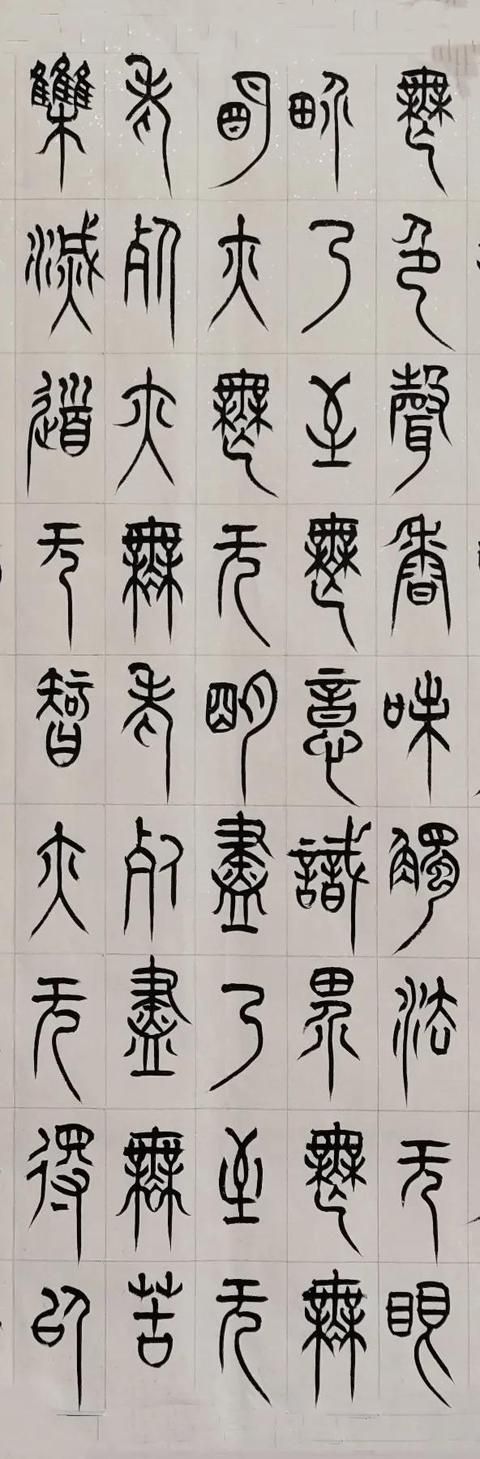 無色聲香味觸法无眼
界乃至無意識界無無
明亦無无明盡乃至无
老死亦無老死盡無苦
集滅道无智亦无得以